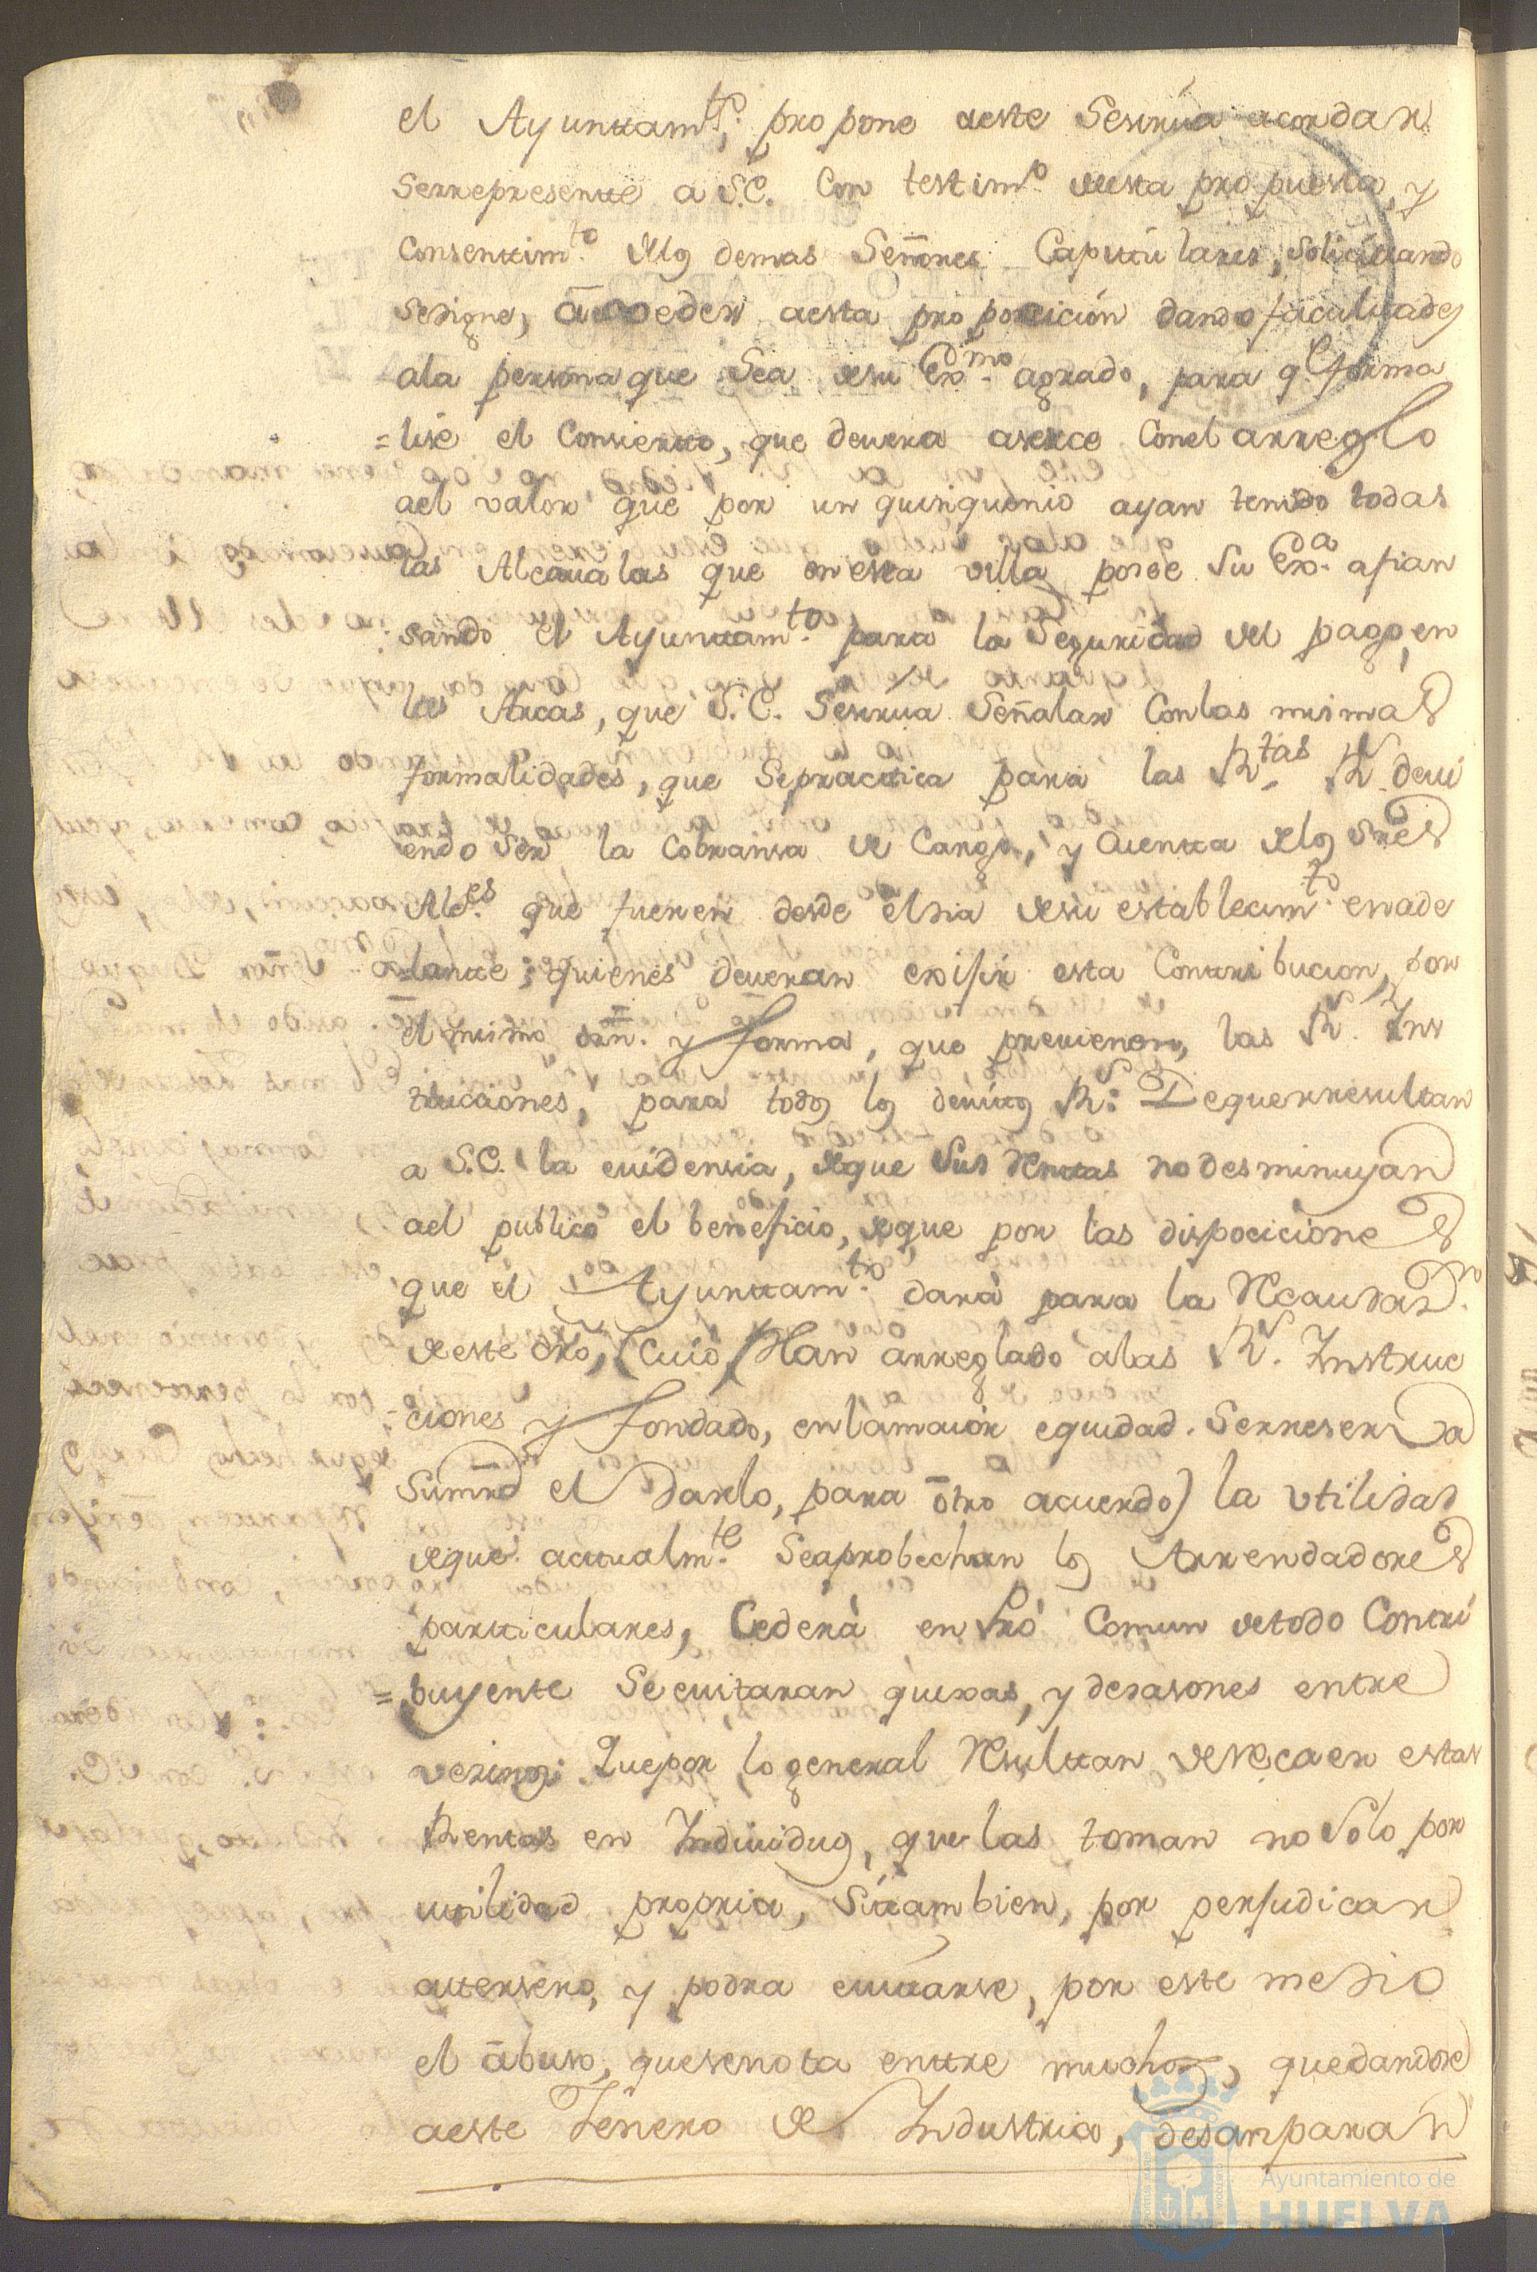 el Ayuntam.to, propone aeste Sesirva acordar
Serrepresente a S.E. Con testim.o deesta propuesta, y
Consentim.to delos demas Señores Capitulares, Solicitando
Sedigne, acceder aesta proposicion dando facultades
ala persona que Sea desu Ex.mo agrado, para q.e forma
=lise el Consierto, que devera aserce Conel arreglo
ael valor que por un quinquenio ayan tenido todas
las Alcavalas que en esta villa posee Su Ex.a afian
sando el Ayuntam.to para la Seguridad del pago, en
las Arcas, que S.E. Sesirva Señalar Conlas mismas
formalidades, que Sepractica para las R.tas R.s devi
endo Ser la Cobransa de Cargo, y Cuenta delos Sres
Alc.es que fueren desde el dia desu establecim.to enade
=lante; quienes deveran exijir esta Contribucion, por
el mismo orn. y forma, que previenen, las R.s Ins
trucciones, para todos los devitos R.s: Dequerresultan
a S.E. la evidensia, deque Sus Rentas no desminuyan
ael publico el beneficio, deque por las disposiciones
que el Ayuntam.to dará para la Recaudaz.n
deeste dro, (Cuio Plan arreglado alas R.s Instruc
ciones y fondado, enlamaior equidad. Serreserva
Sumrd el Darlo, para otro acuerdo) la utilidad
deque actualm.te Seaprobechan los Arrendadores
particulares, Cederá en Pró Comun detodo Contri
=buyente Se evitaran quexas, y desasones entre
vezinos: Quepor lo general Resultan derecaer estas
Rentas en Individuos, que las toman no Solo por
utilidad propria, Sitambien, por perjudicar
atersero, y podra evitarse, por este medio
el abuso, quesenota entre muchos, quedandose
aeste Jenero de Industria, desamparan
Ayuntamiento de
HUELVA